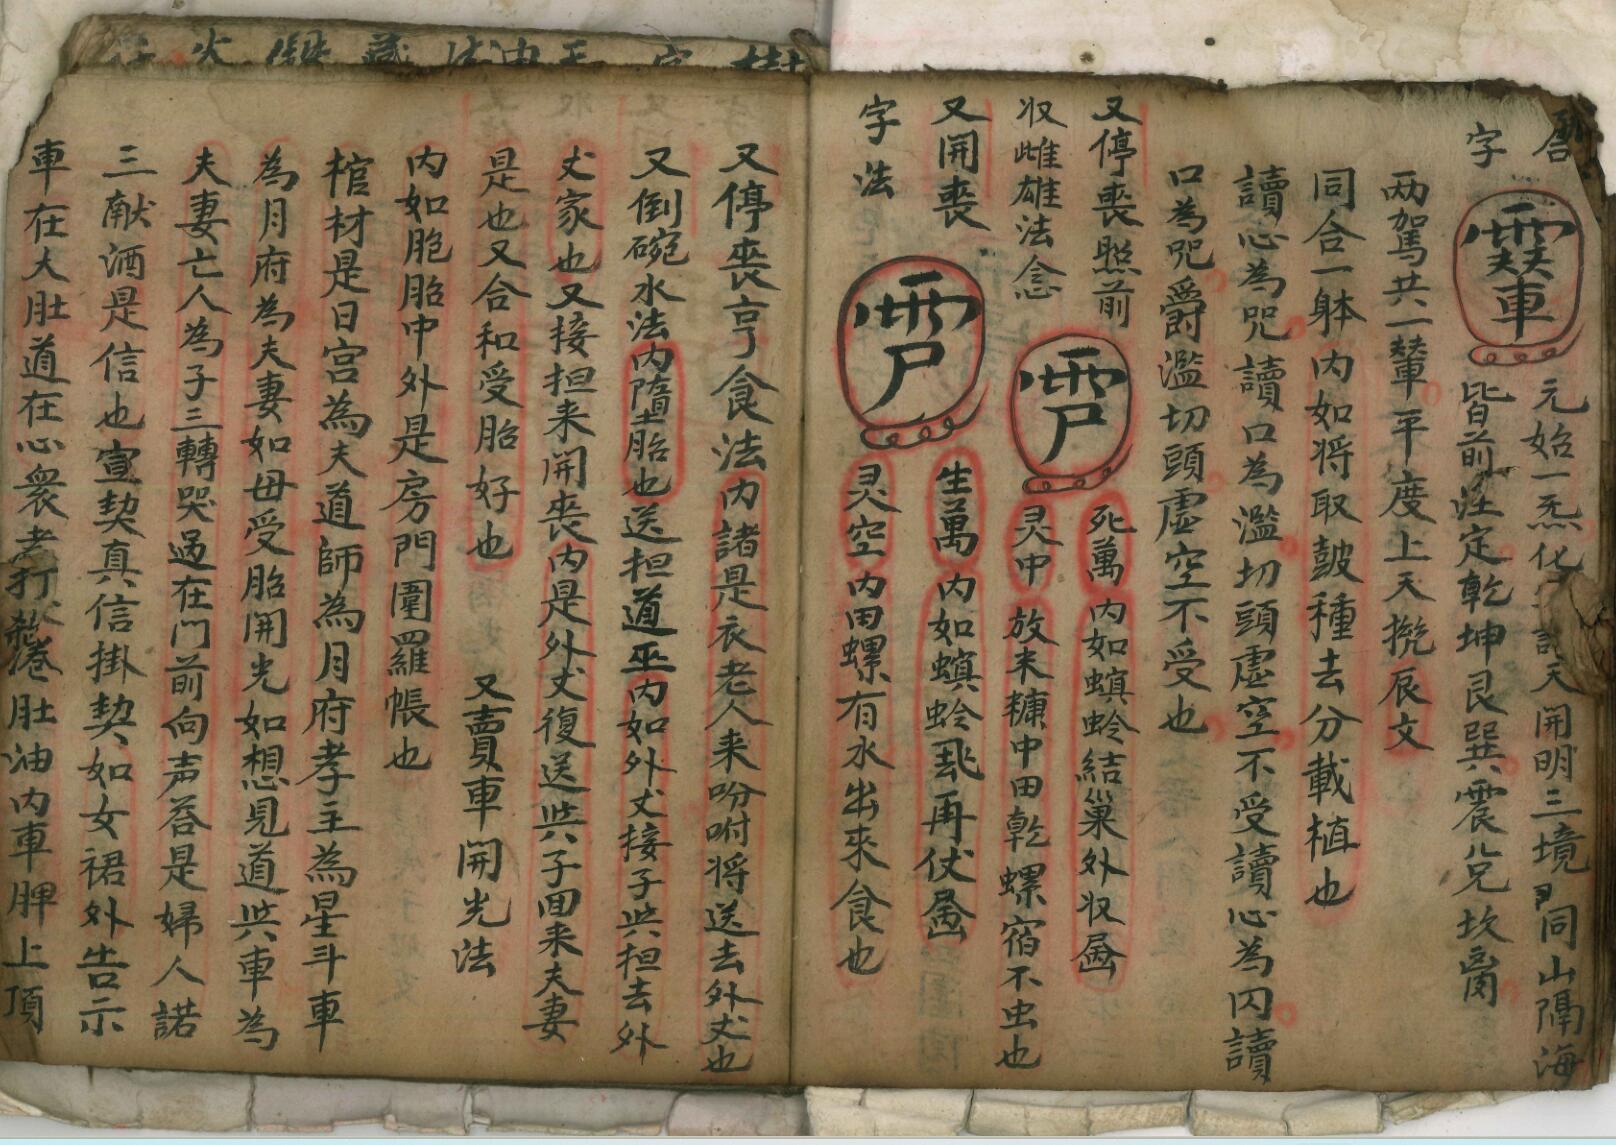 字
元始一炁化 天開明三境 同山隔海
皆前注定乾坤艮巽震兌坎离
两駕共一輦平度上天㧱辰文
同合一躰内如将取皷種去分載植也
讀心為咒讀口為濫切頭虚空不受讀心為囚讀
口為咒爵濫切頭虚空不受也
又停喪照前 死萬内如螟蛉結巢外収
収雌雄法念 灵中放来糠中田乾螺宿不虫也
又開喪 生萬内如螟蛉 再伏
字法 灵空内田螺有水出來食也
又停喪亨食法内諸是衣老人来吩咐将送去外丈也
又倒碗水法内墮胎也送担道巫内如外丈接子共担去外
丈家也又接担来開喪内是外丈復送些子回来夫妻
是也又合和受胎好也 又賣車開光法
内如胞胎中外是房門圍羅帳也
棺材是日宫為夫道師為月府孝主為星斗車
為月府為夫妻如毋受胎開光如想見道共車為
夫妻亡人為子三轉哭過在门前向声荅是婦人諾
三献酒是信也宣契真信掛契如女裙外告示
車在大肚道在心衆孝打 肚油内車脾上頂